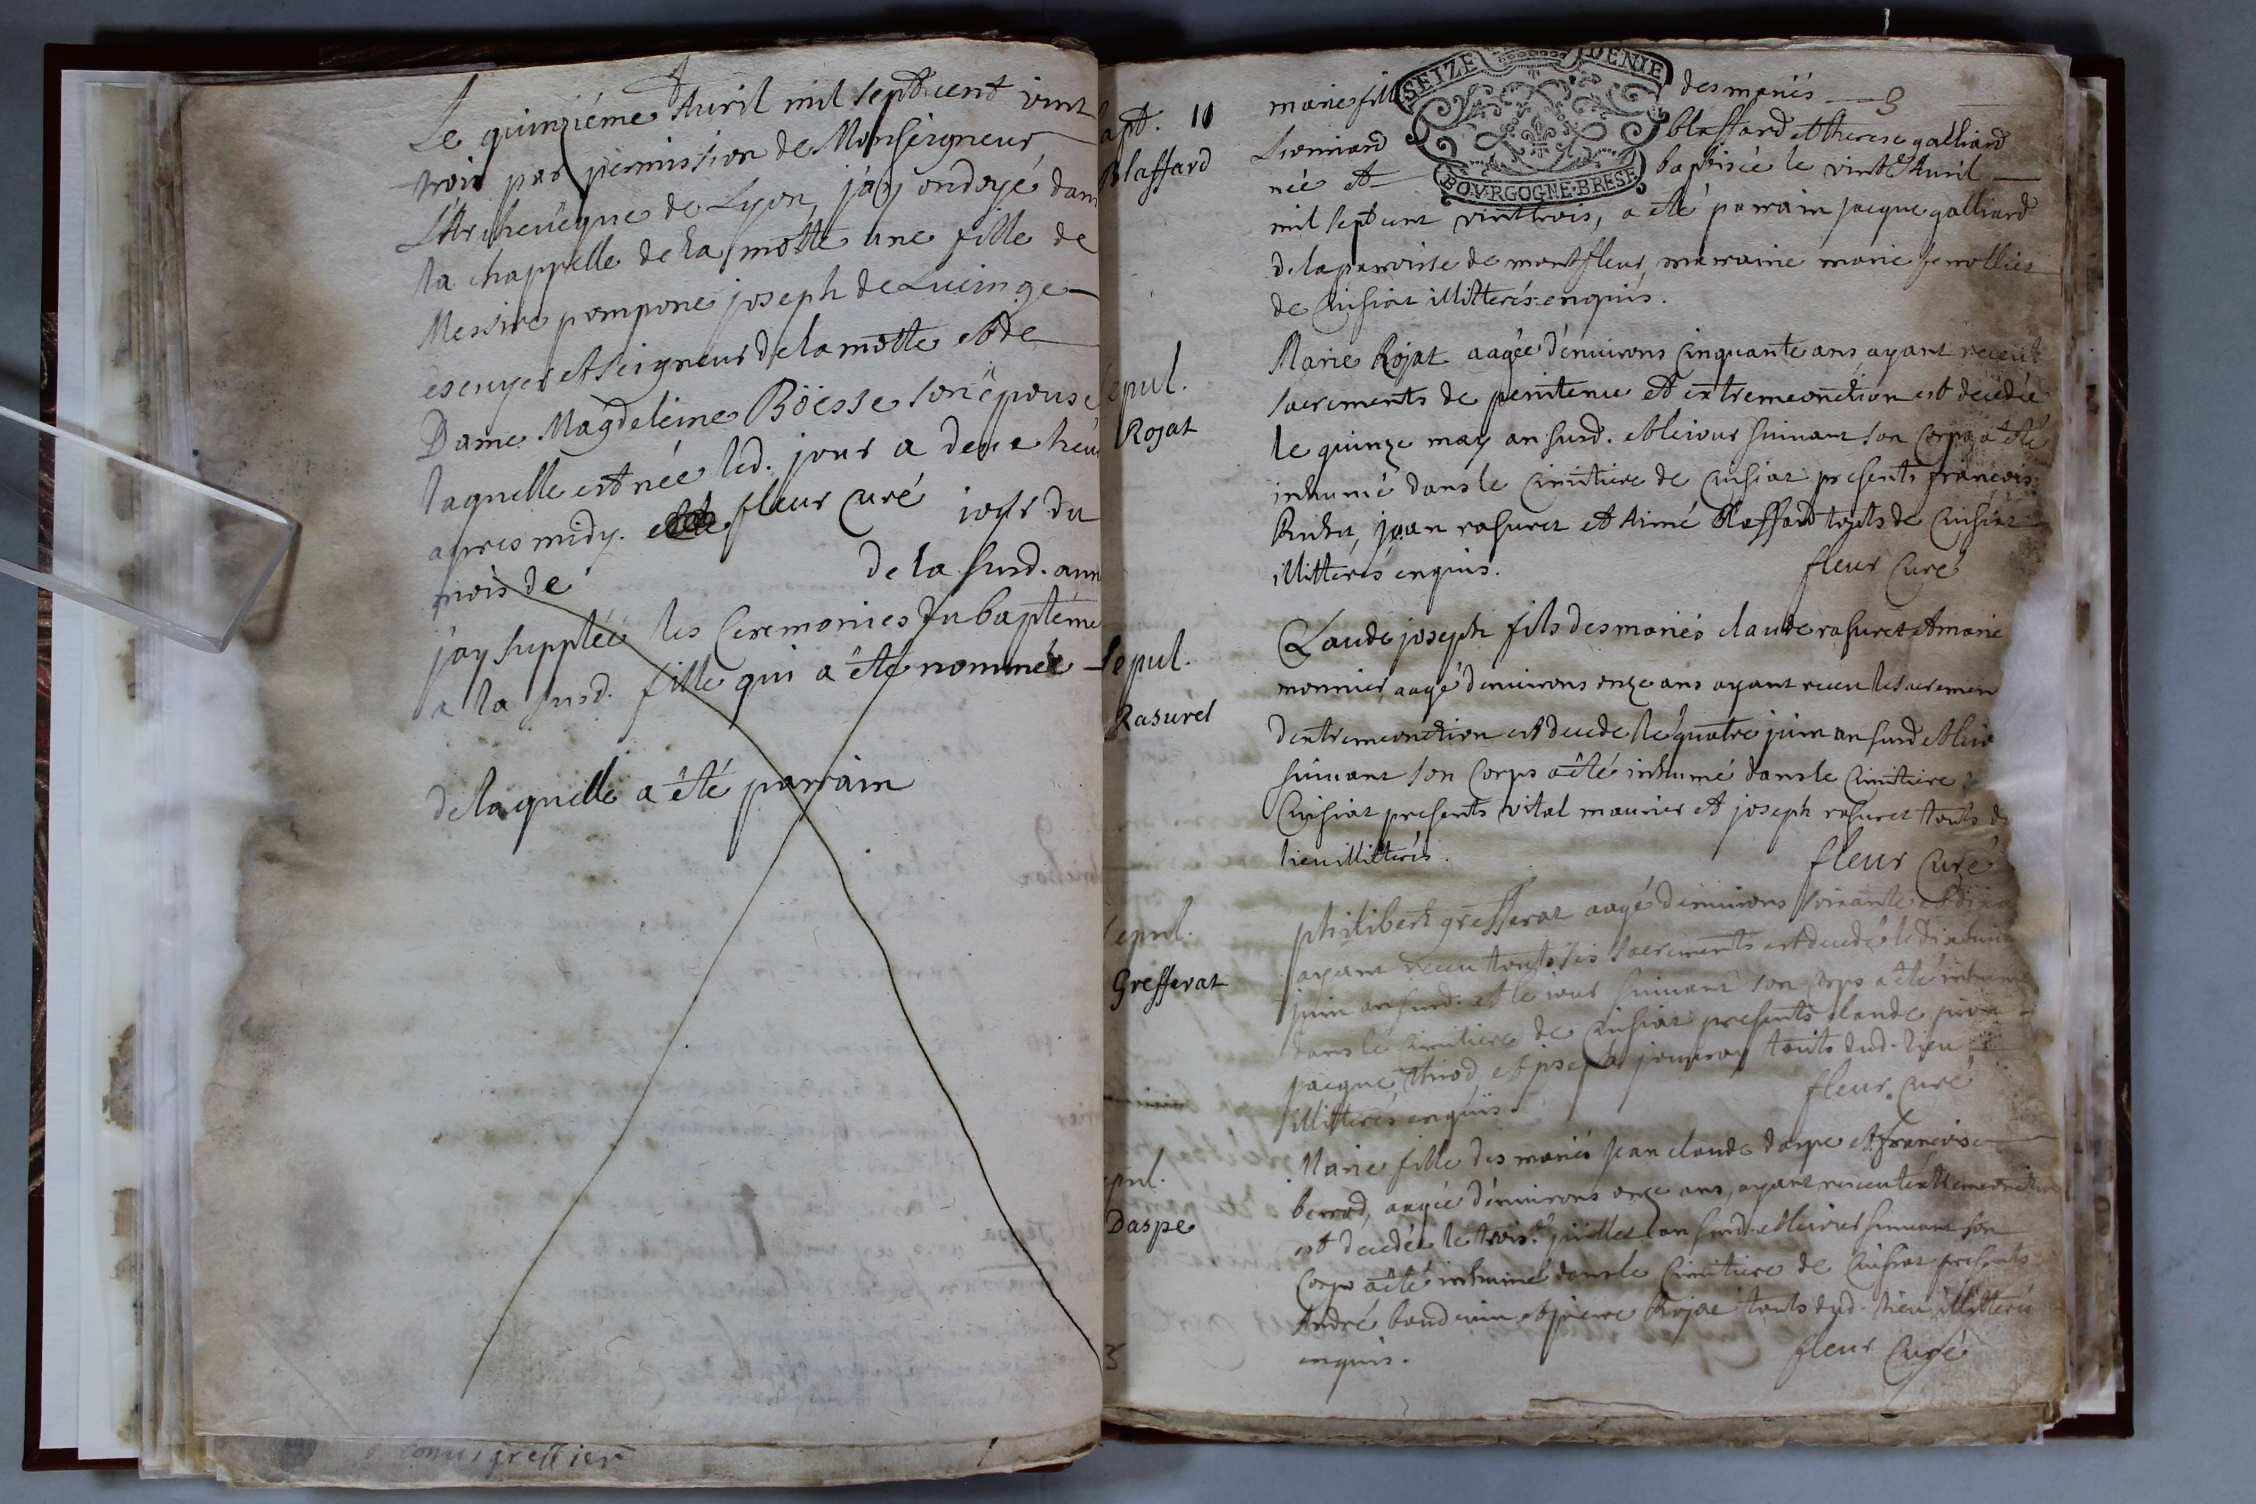 Le quinziéme Auril mil sept cent vint
trois par permission de Monseigneur
L'Archeuêque de Lyon, j'ay ondoyé dans
la chappelle de la motte une fille de
Messire pompone joseph de Lucinge
escuyer et seigneur de la motte et de
Dame Magdeleine Böesse son épouse
laquelle est née led. jour a deux heu
apres midy. fleur curé jour du
mois de de la susd. ann
j'ay supplée les Ceremonies du baptéme
a la susd. fille qui a été nommée
de laquelle a été parrain
comis greffier
apt. 11
Blaffard
marie fill des mariés 3
Leonnard blaffard et therese galliard
née et baptisée le vint Auril
mil sept cent vint trois, a été parrain jacque galliard
de la parroisse de montfleur, marraine marie
de Cuisiat illitterés enquis.
Sepul.
Rojat
Marie Rojat aagée d'enuirons Cinquante ans ayant receu
sacrements de penitence et extremeonction est decedée
le quinze may an susd. et le jour suiuant son corps a été
inhumé dans le Cimitiere de Cuisiat presents francois
jean rasuret et Aimé Blaffard touts de Cuisiat
illitterés enquis. fleur Curé
Sepul.
Rasuret
Claude joseph fils des mariés claude rasuret et marie
monnier, aagé d'enuirons onze ans ayant receu le sacremen
d'extremeonction est decedé le quatre juin an susd et le jo
suiuant son Corps a été inhumé dans le Cimitiere
Cuisiat presents vital maurier et joseph rasuret touts d
lieu illitterés. fleur Curé
Sepul.
Grefferat
philibert grefferat aagé d'enuirons soixante et dix
ayant receu touts ses sacrements est decedé le
juin an susd. et le jour suiuant son corps a été inhumé
dans le Cimitiere de Cuisiat presents claude
jacque thiod et joseph touts dud. lieu
illitterés enquis. fleur curé
pul.
Daspe
Marie fille des mariés jean claude daspe et francoise
aagée d'enuirons onze ans, ayant receu l'extremeonction
est decedée le trois juillet an susd. et le jour suiuant son
Corps a été inhumé dans le Cimitiere de Cuisiat presents
André et pierre Rojat touts dud. lieu illitterés
enquis. fleur Curé
SEIZE DENIE
BOVRGOGNE·BRESE